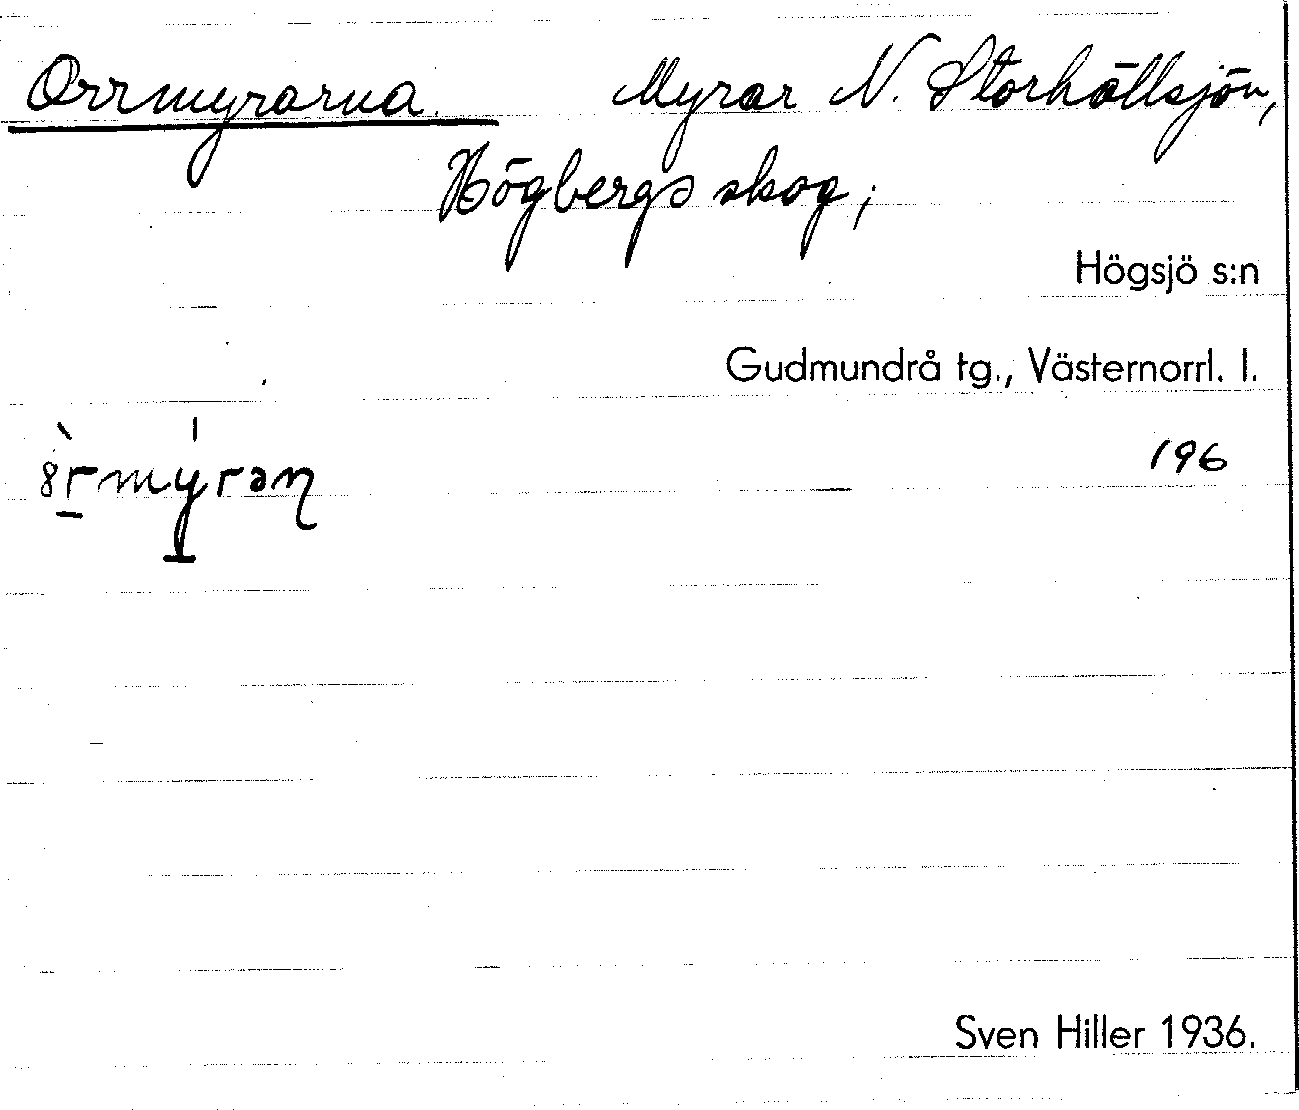 Orrmyrarna. Myrar N. Storhällsjön,
Högbergs skog;
Högsjö s:n
Gudmundrå tg., Västernorrl. l.
196
Sven Hiller 1936.